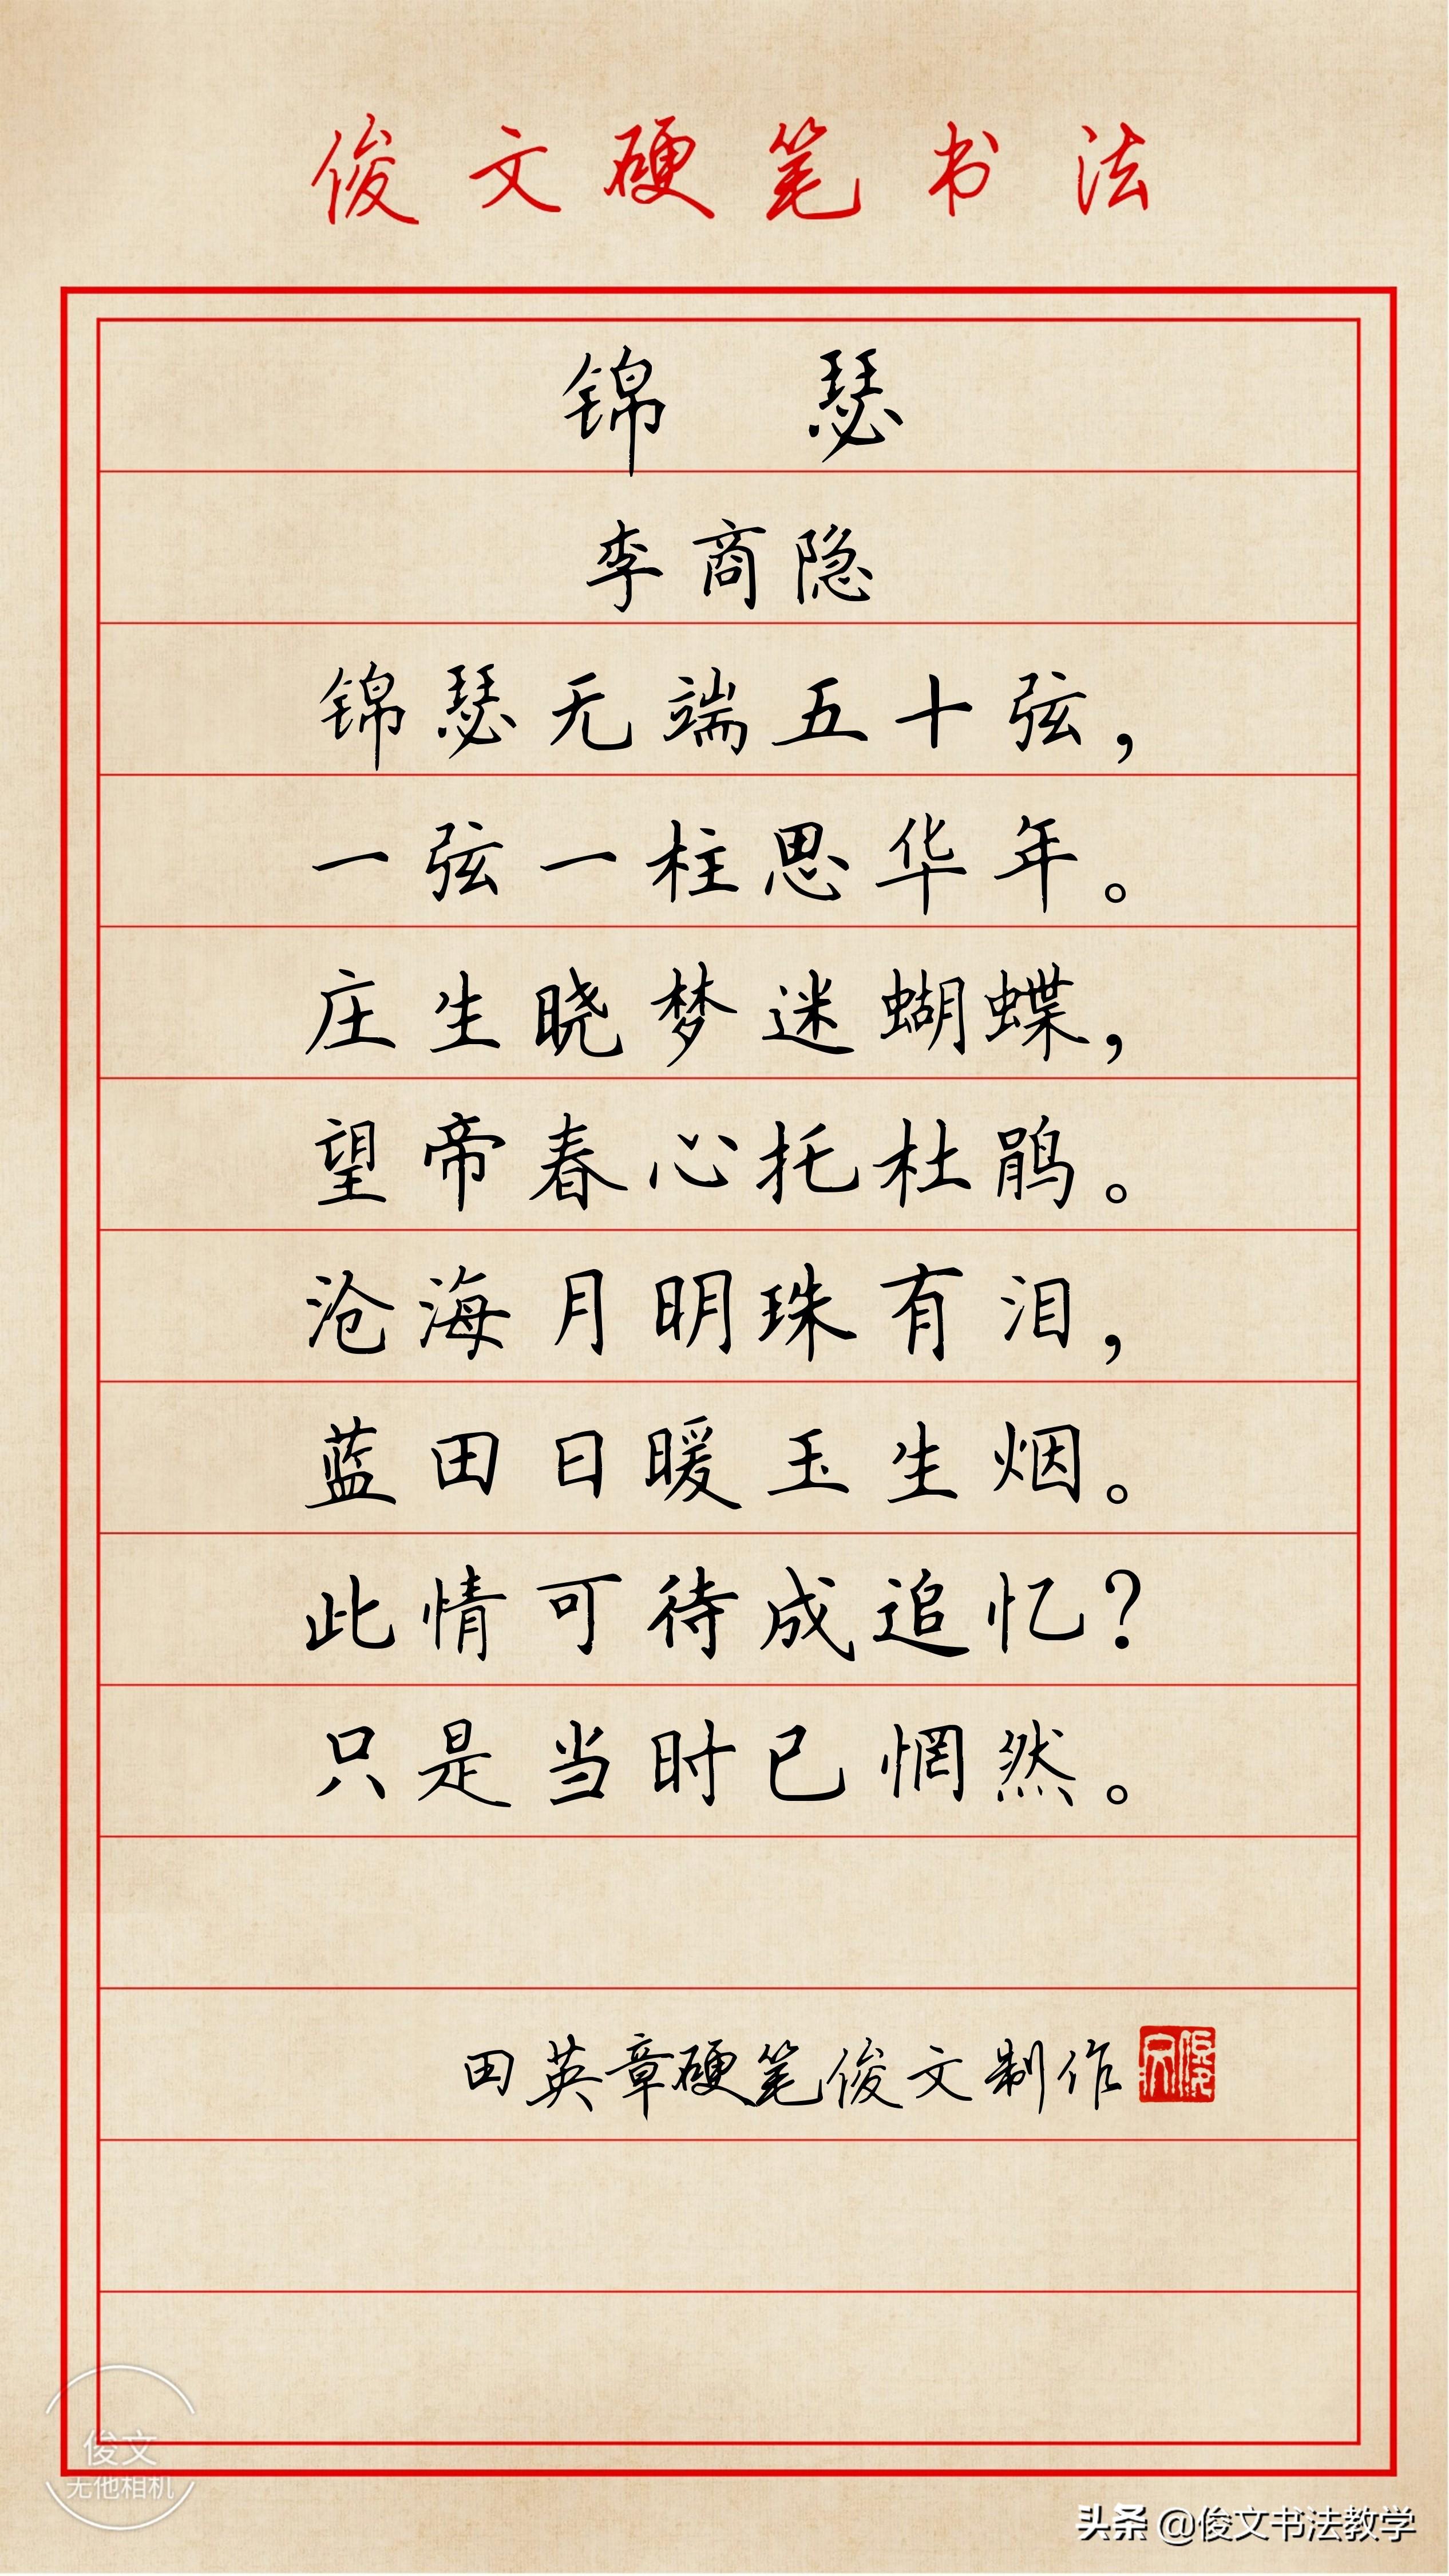 俊文硬笔书法
锦 瑟
李商隐
锦瑟无端五十弦，
一弦一柱思华年。
庄生晓梦迷蝴蝶，
望帝春心托杜鹃。
沧海月明珠有泪，
蓝田日暖玉生烟。
此情可待成追忆？
只是当时已惘然。
田英章硬笔俊文制作
俊文
无他相机
头条 @俊文书法教学